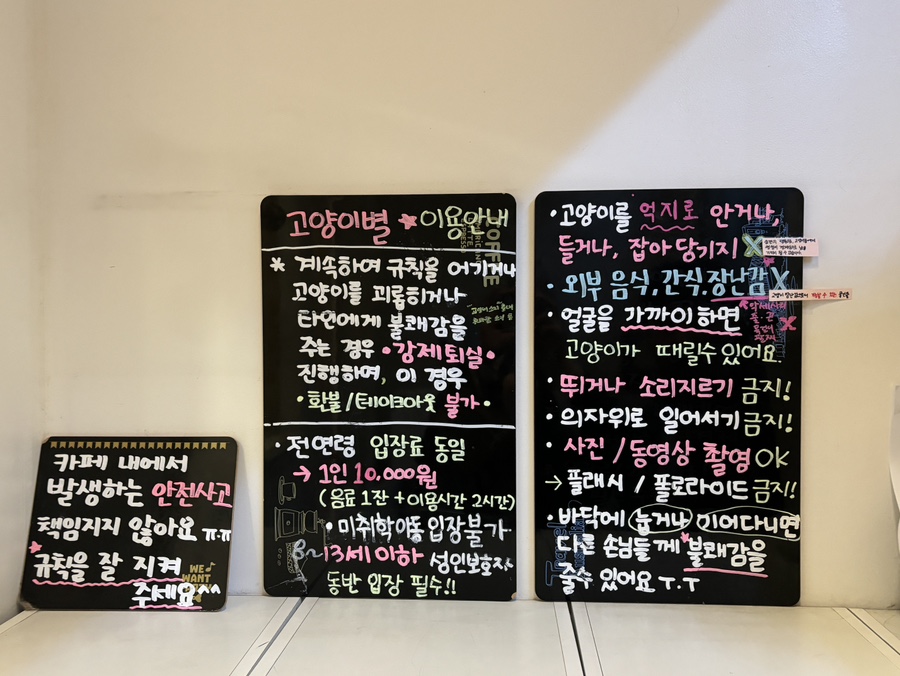 카페 내에서
발생하는 안전사고
책임지지 않아요 ㅠ.ㅠ
규칙을 잘 지켜
주세요^^
WE
WANT
고양이별 ★이용안내
* 계속하여 규칙을 어기거나
고양이를 괴롭히거나
타인에게 불쾌감을
주는 경우 •강제퇴실•
진행하며, 이 경우
•환불/테이크아웃 불가•
•전연령 입장료 동일
→1인 10,000원
(음료 1잔 + 이용시간 2시간)
•미취학아동 입장불가
8~13세 이하 성인보호자
동반 입장 필수!!
COFFEE
•고양이를 억지로 안거나,
들거나, 잡아당기지 X
•외부 음식,간식.장난감 X
•얼굴을 가까이하면
고양이가 때릴수있어요.
•뛰거나 소리지르기 금지!
•의자위로 일어서기 금지!
•사진 /동영상 촬영 OK
→플래시 / 폴로라이드 금지!
•바닥에 눕거나 기어다니면
다른 손님들께 *불쾌감을
줄수 있어요 T.T